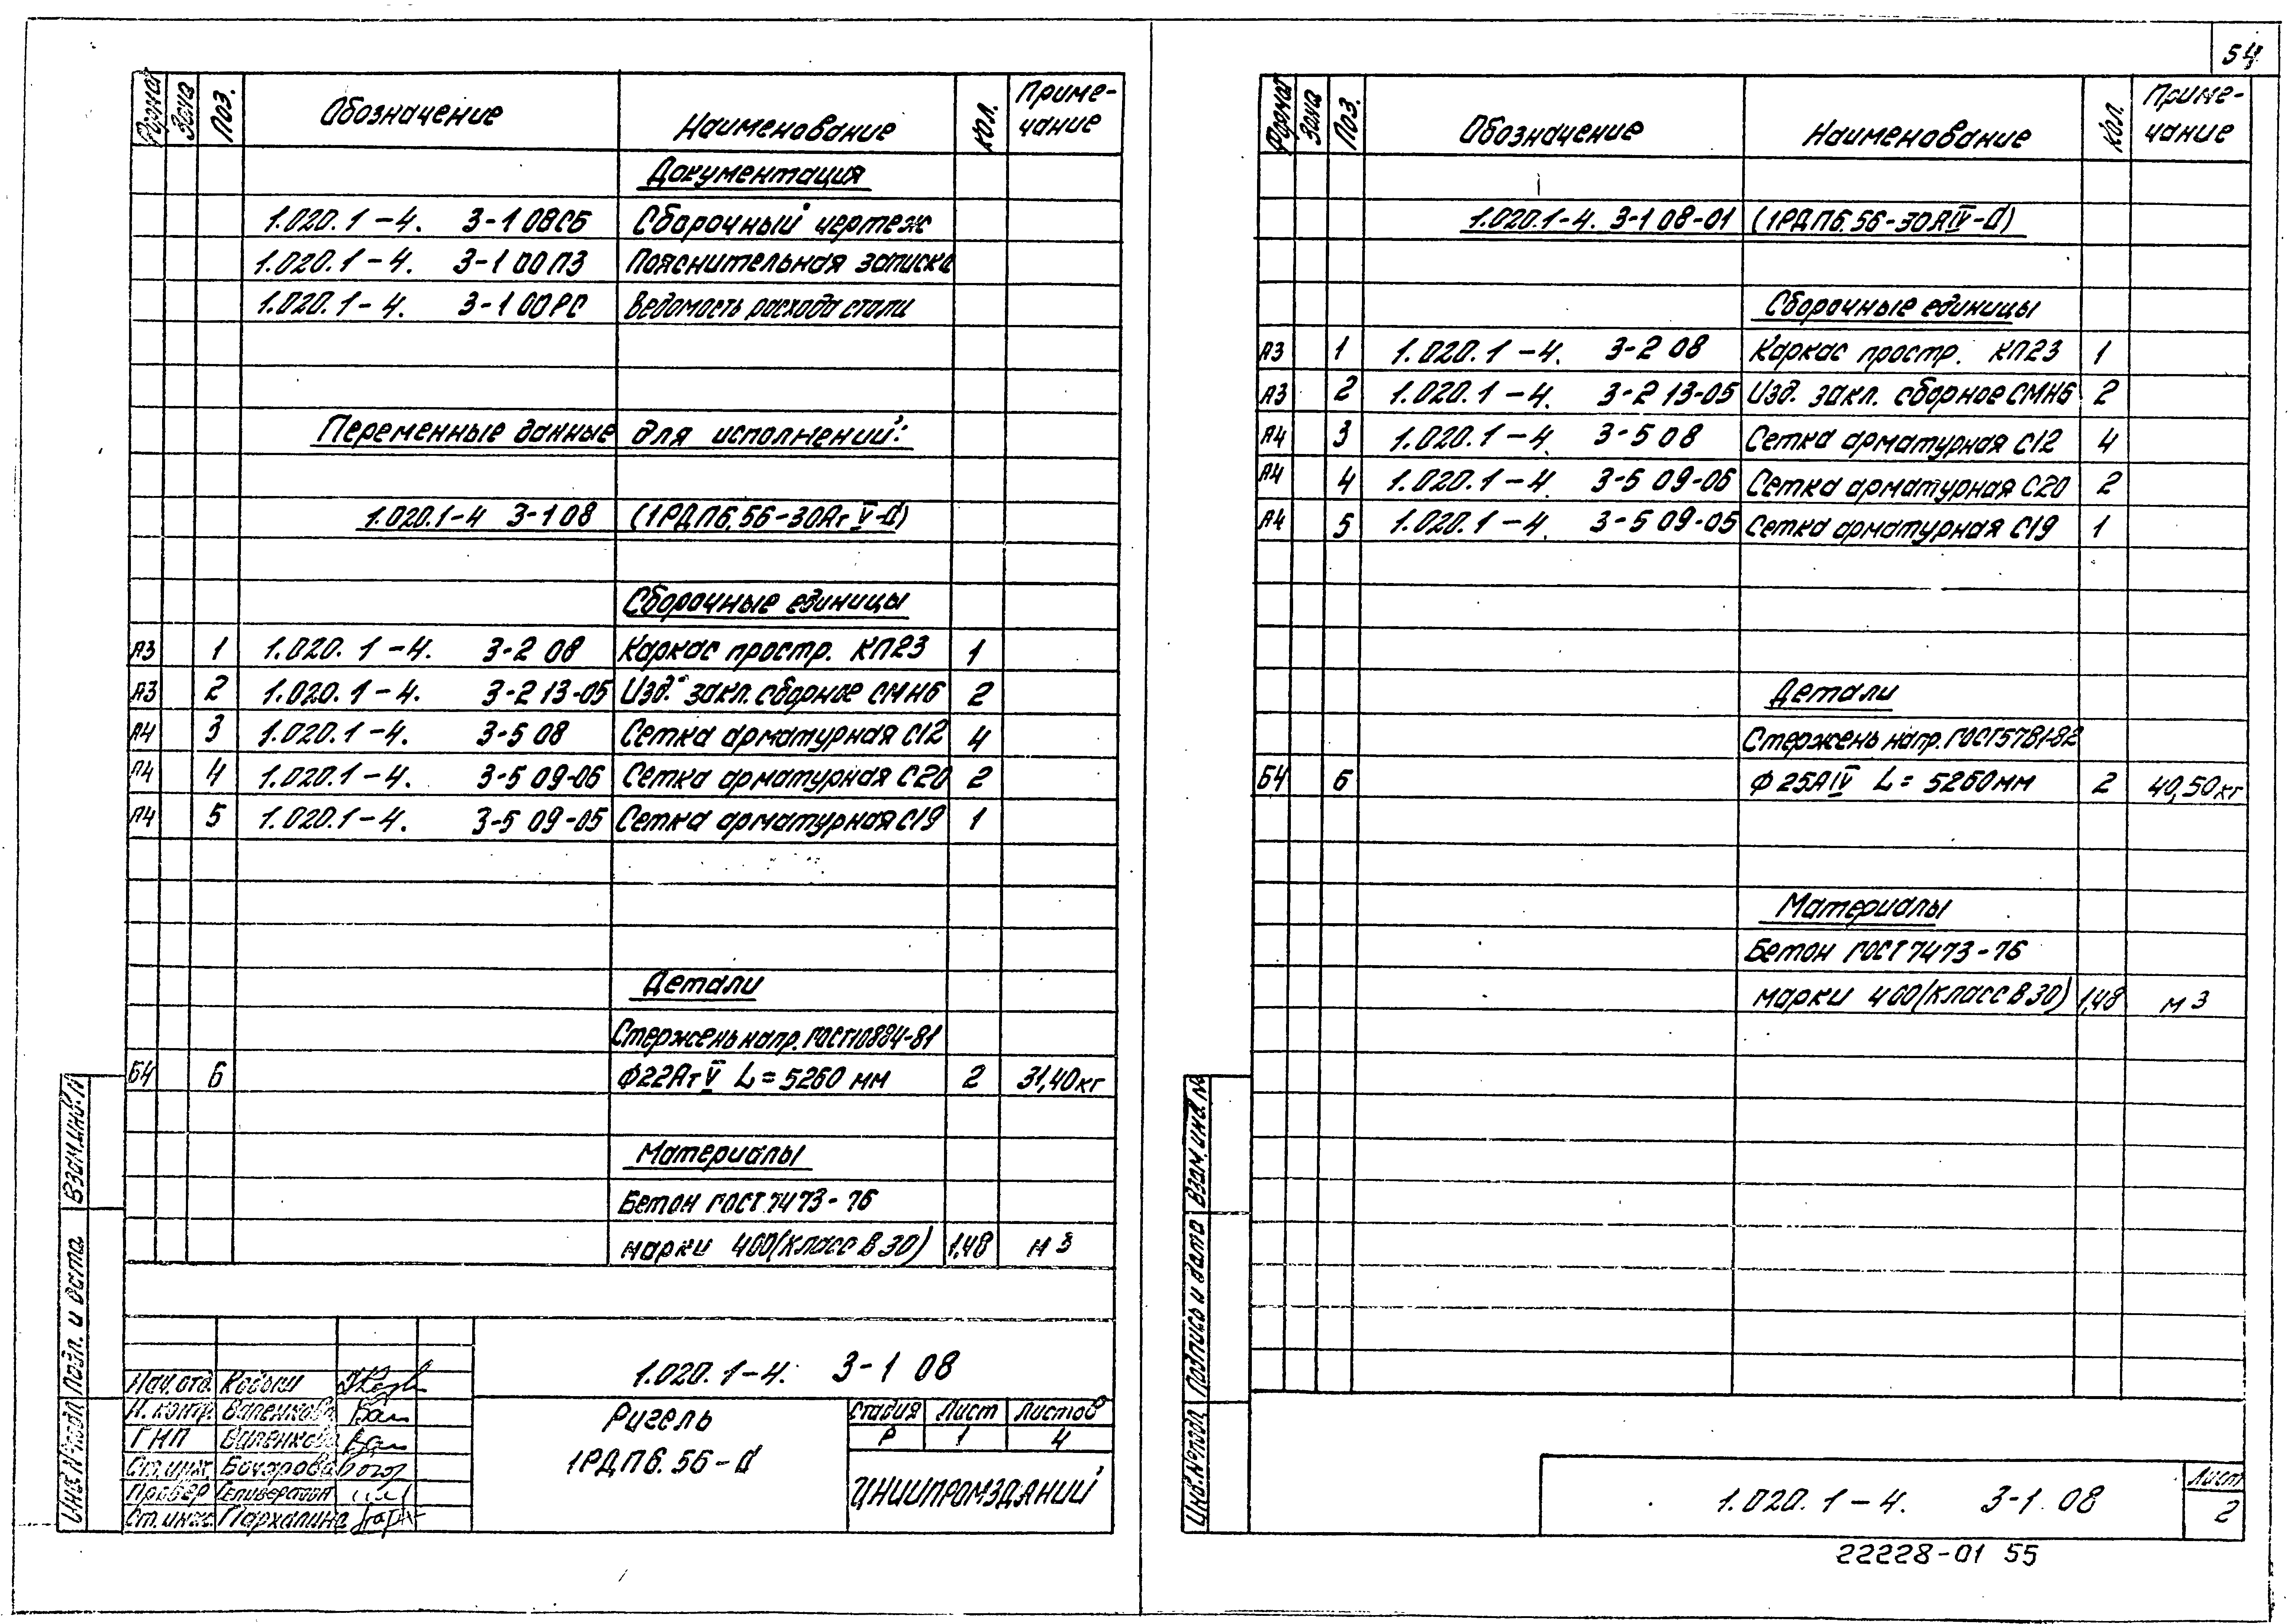 54
Формат Зона Поз. Обозначение Наименование Кол. Приме-
чание
Документация
1.020.1-4. 3-1 08СБ Сборочный чертеж
1.020.1-4. 3-1 00ПЗ Пояснительная записка
1.020.1-4. 3-1 00РС Ведомость расхода стали
Переменные данные для исполнений:
1.020.1-4 3-1 08 (1РДП6.56-30АтV-а)
Сборочные единицы
А3 1 1.020.1-4. 3-2 08 Каркас простр. КП23 1
А3 2 1.020.1-4. 3-2 13-05 Изд. закл. сборное СМН6 2
А4 3 1.020.1-4. 3-5 08 Сетка арматурная С12 4
А4 4 1.020.1-4. 3-5 09-06 Сетка арматурная С20 2
А4 5 1.020.1-4. 3-5 09-05 Сетка арматурная С19 1
Детали
Стержень напр. ГОСТ10884-81
Б4 6 Ф22АтV L=5260 мм 2 31,40кг
Материалы
Бетон ГОСТ 7473-76
марки 400(класс В30) 1,48 м3
Взам.инв.№
Подп. и дата
Инв.№подл.
1.020.1-4. 3-1 08
Нач.отд. Кодыш
Н. контр. Валенкова
ГИП Валенкова
Ст.инж. Бочарова
Провер
Ст.инж. Пархалина
Ригель
1РДП6.56-а
Стадия Лист Листов
Р 1 4
ЦНИИПРОМЗДАНИЙ
Формат Зона Поз. Обозначение Наименование Кол. Приме-
чание
1.020.1-4. 3-1 08-01 (1РДП6.56-30АIV-а)
Сборочные единицы
А3 1 1.020.1-4. 3-2 08 Каркас простр. КП23 1
А3 2 1.020.1-4. 3-2 13-05 Изд. закл. сборное СМН6 2
А4 3 1.020.1-4. 3-5 08 Сетка арматурная С12 4
А4 4 1.020.1-4. 3-5 09-06 Сетка арматурная С20 2
А4 5 1.020.1-4. 3-5 09-05 Сетка арматурная С19 1
Детали
Стержень напр. ГОСТ5781-82
Б4 6 Ф25АIV L=5260мм 2 40,50кг
Материалы
Бетон ГОСТ 7473-76
марки 400(класс В30) 1,48 м3
Взам.инв.№
Подпись и дата
Инв.№подл.
1.020.1-4. 3-1 08
Лист
2
22228-01 55